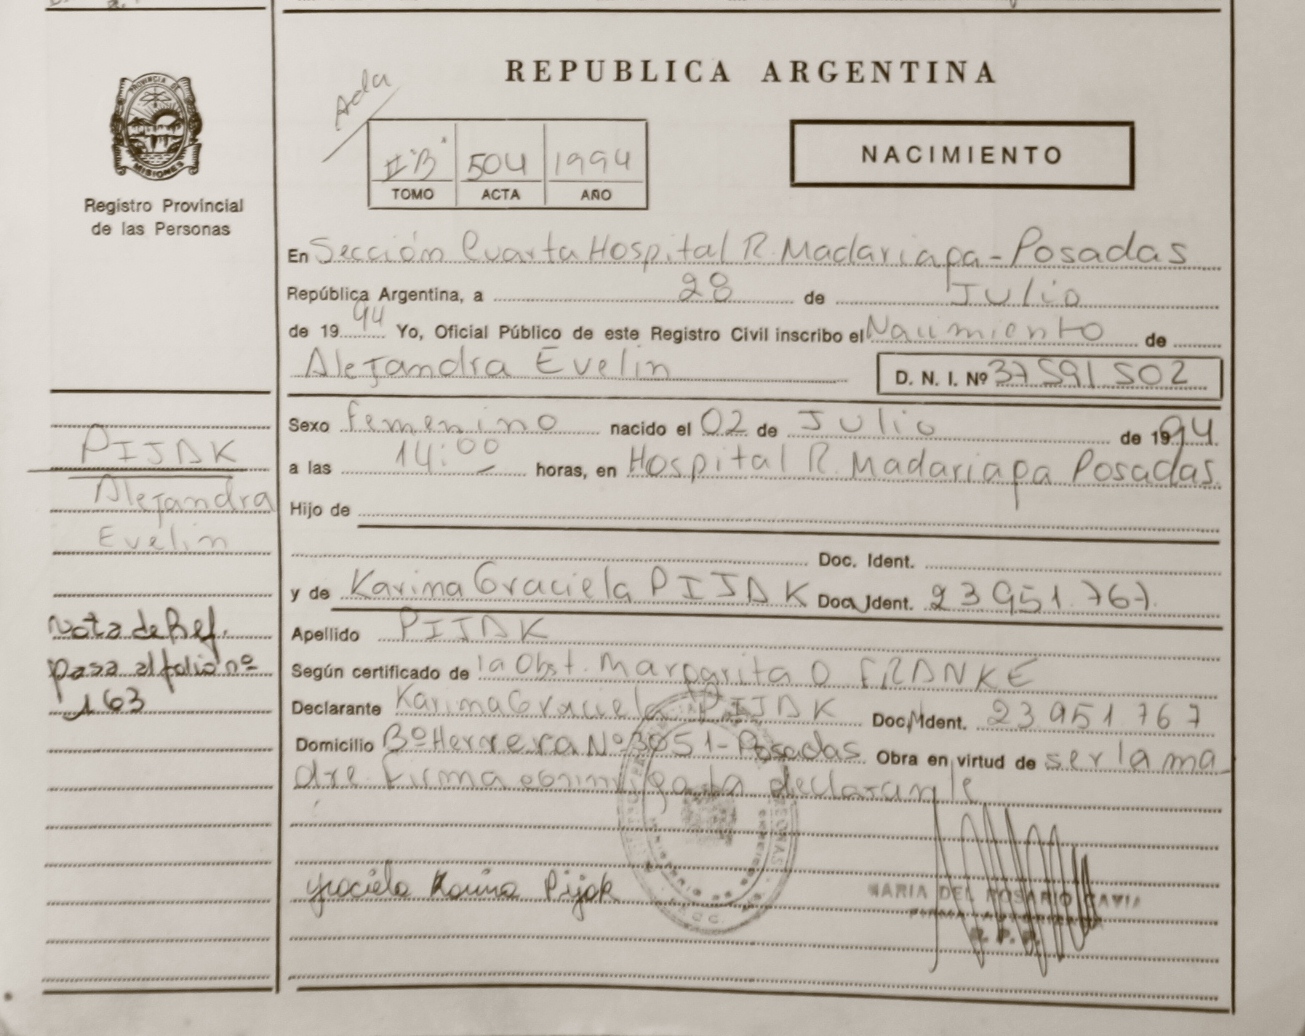 REPUBLICA ARGENTINA
Acta
II "B" 504 1994
TOMO ACTA AÑO
NACIMIENTO
PROVINCIA DE MISIONES
Registro Provincial
de las Personas
En Sección Cuarta Hospital R. Madariaga - Posadas
República Argentina, a 28 de Julio
de 1994 Yo, Oficial Público de este Registro Civil inscribo el Nacimiento de
Alejandra Evelin D. N. I. Nº 37 591 502
Sexo femenino nacido el 02 de Julio de 1994.
a las 14:00 horas, en Hospital R. Madariaga Posadas.
Hijo de
Doc. Ident.
y de Karina Graciela PIJAK Doc. Ident. 23 951.767.
Apellido PIJAK
Según certificado de la Obst. Margarita O FRANKE
Declarante Karina Graciela PIJAK Doc. Ident. 23 951 767
Domicilio Bº Herrera Nº 3051 - Posadas. Obra en virtud de ser la ma
dre. Firma conmigo la declarante
Graciela Karina Pijak
MARIA DEL ROSARIO
PIJAK
Alejandra
Evelin
Nota de Ref.
pasa al folio nº
163